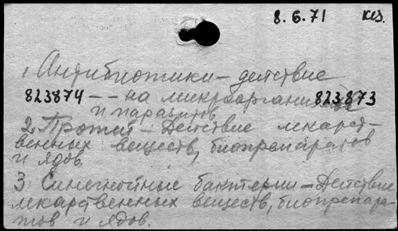 8.6.71 кез.
1. Антибиотики – действие
823874 – – на микрооргани 823873
и паразитов
2. Протей – Действие лекарст-
венных веществ, биопрепаратов
и ядов.
3. Синегнойные бактерии – Действие
лекарственных веществ, биопрепара-
тов и ядов.